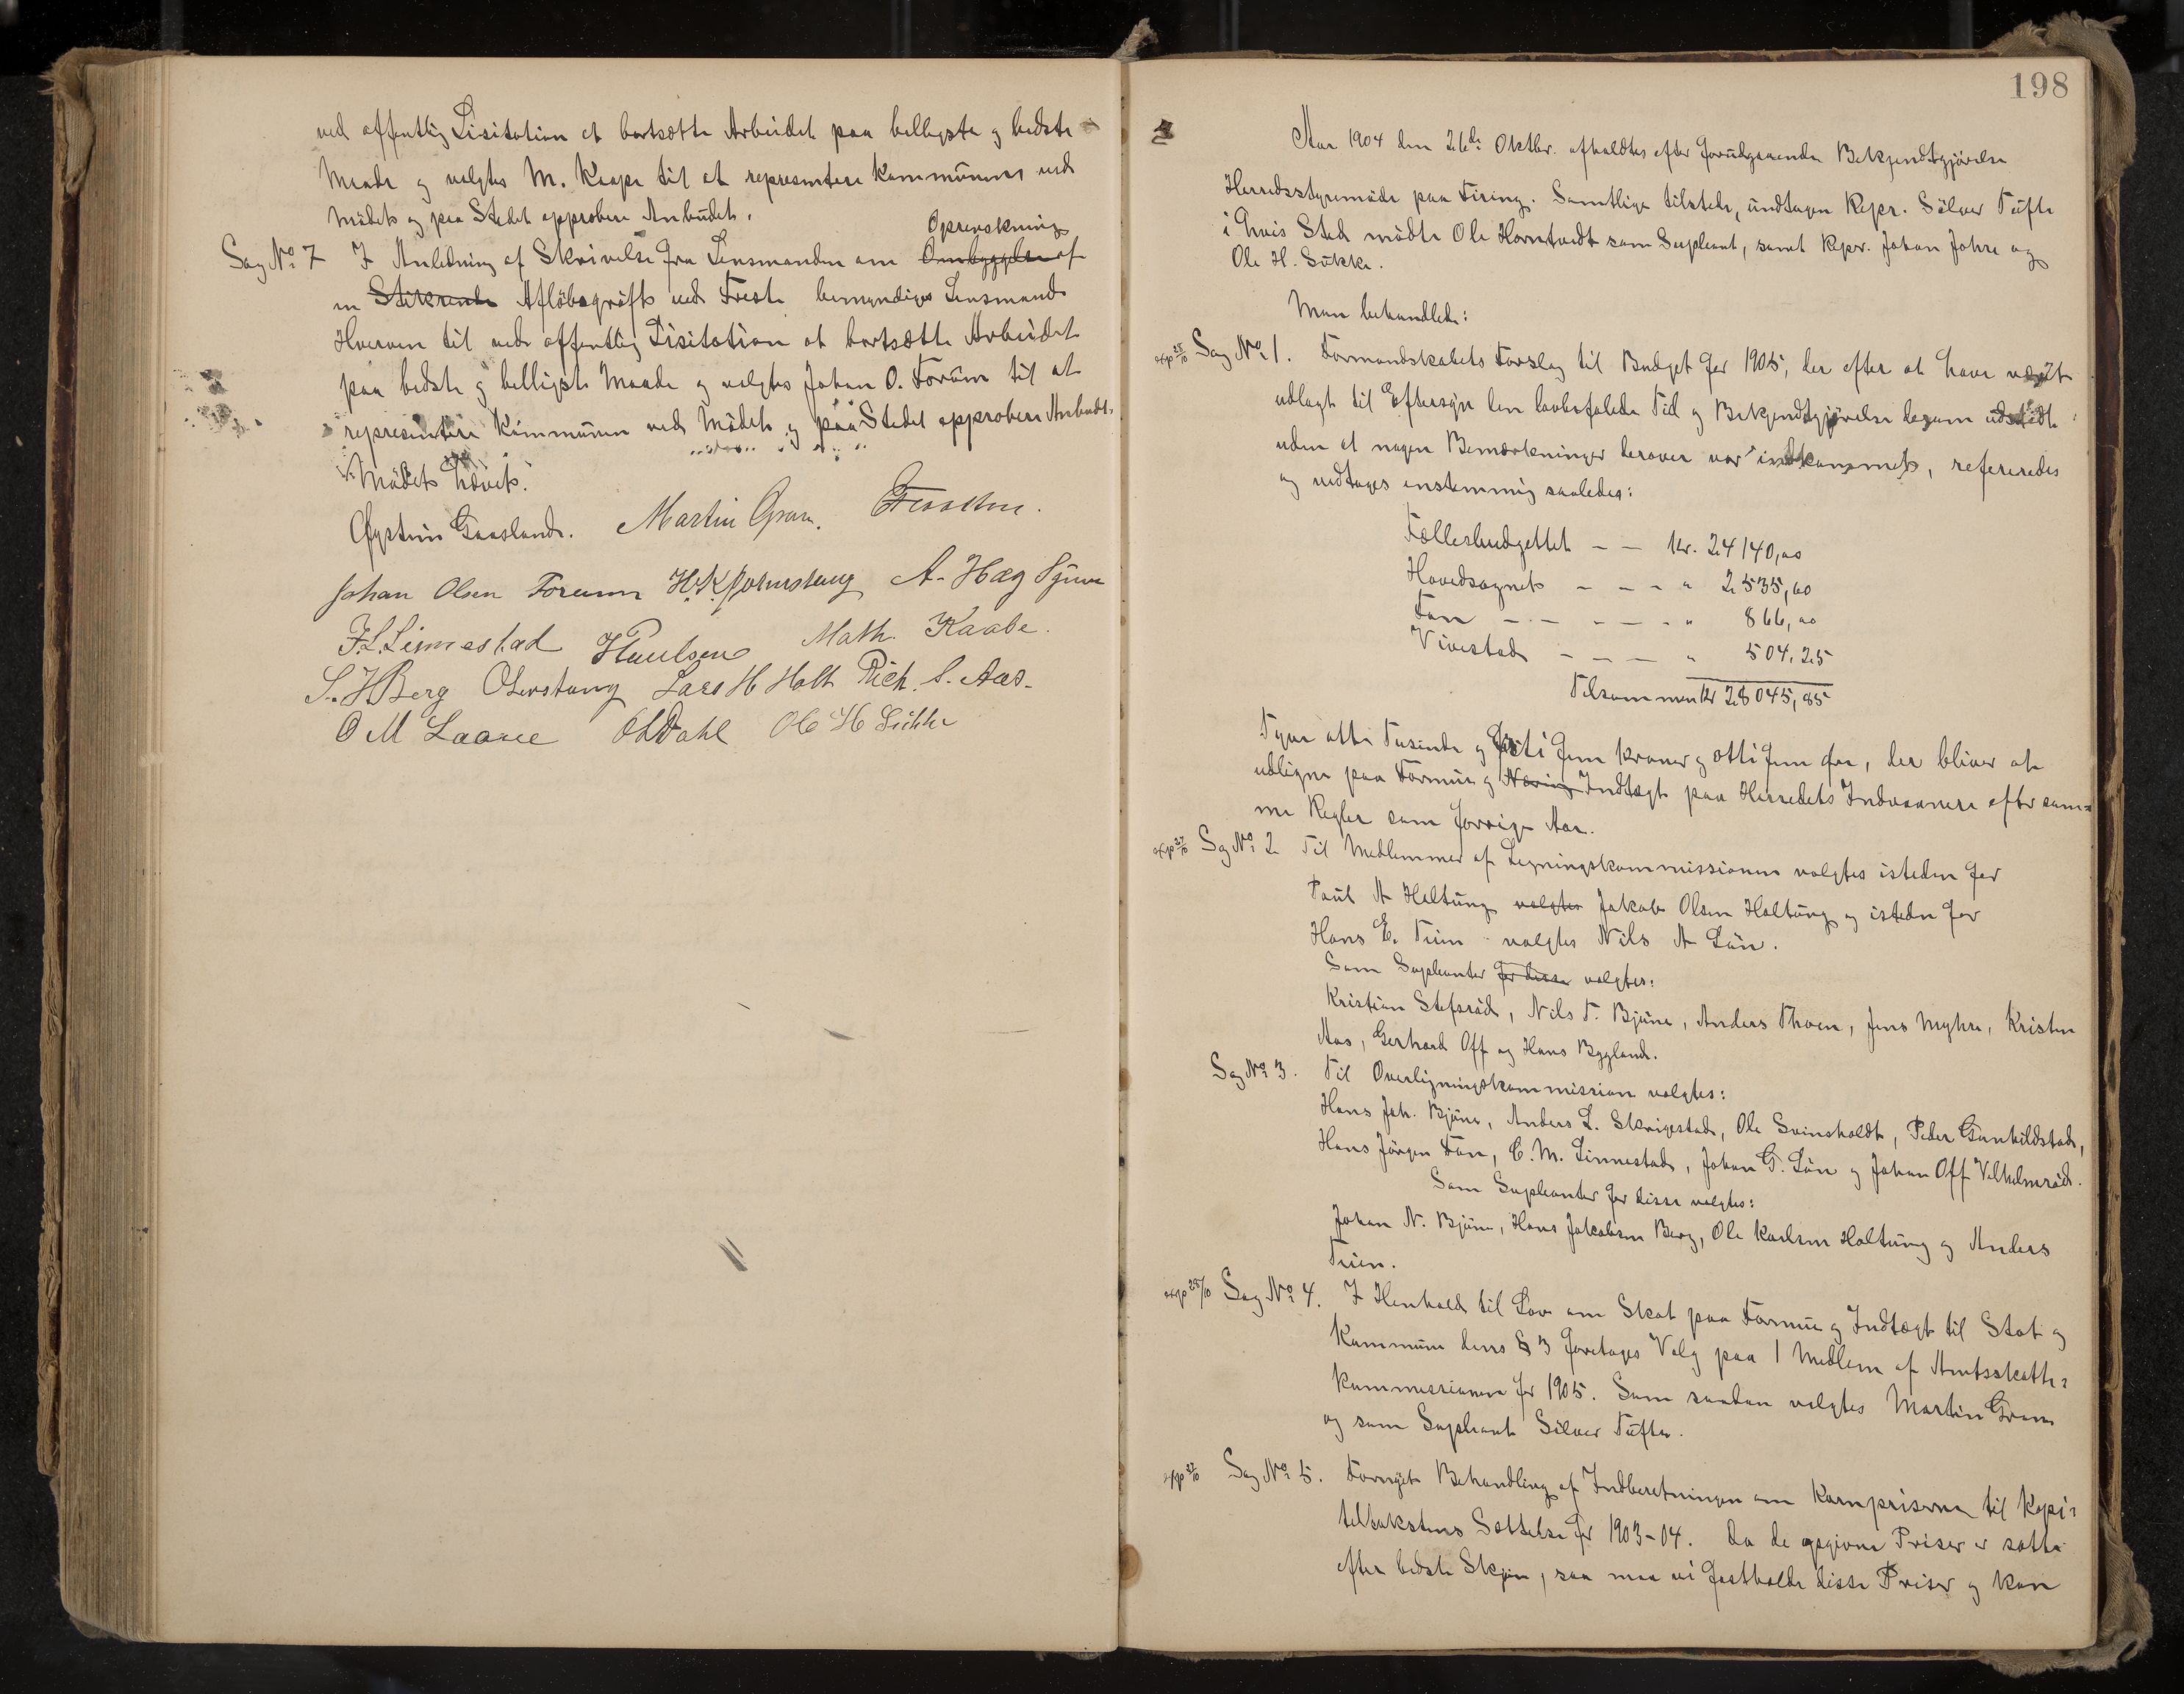 ved offentlig Lisitation at bortsætte Arbeidet paa belligste og bedste
Maade og valgtes M. Kaape til at represintere Kommunen ved
Mødet og paa Stedet approbere Anbudet.
Opprenskning
Sag No 7 I Anledning af Skrivelse fra Lensmanden om Ombyggelse af
en Stikrende Afløbsgrøft ved Freste bemyndiges Lensmand
Hverven til ved offentlig Lisitation at bortsætte Arbeidet
paa bedste og belligste Maade og valgtes Johan O. Forum til at
represintere Kommunen ved Mødet og paa Stedet approbere Anbudet.
Mødet hævet.
Øystein Gaasland. Martin Gran.
Johan Olsen Forum A. Høg Tjuve
F. L. Linnestad HPaulsen Math. Kaabe.
S. H Berg OLerstang Lars H Holt Rich. S. Aas.
O M Laane OHDahl Ole H Sukke
198
Aar 1904 den 26de Oktbr. afholdtes efter forudgaaende Bekjendtgjørelse
Herredsstyremøde paa Firing. Samtlige tilstede, undtagen Repr. Sølver Tufte
i hvis Sted mødte Ole Horntvedt som Supleant, samt Repr. Johan Johre og
Ole H. Sukke.
Man behandlede:
exp 28/10 Sag No 1. Formandskabets Forslag til Budget for 1905, der efter at have været
udlagt til Eftersyn den lovbefalede Tid og Bekjendtgjørelse derom udstedt
uden at nogen Bemærkninger derover var indkommet, refereredes
og vedtoges enstemmig saaledes:
Fællesbudgettet — — Kr. 24140,00
Hovedsognet — — — " 2535,60
Fon — — — — — " 866,00
Vivestad — — — " 504,25
Tilsammen Kr 28045,85
Tyve otte Tusinde og førti fem kroner og otti fem øre, der bliver at
udligne paa Formue og Næring Indtægt paa Herredets Indvaanere efter sam=
me Regler som forrige Aar.
exp 27/10 Sag No 2 Til Medlemmer af Ligningskommissionen valgtes isteden for
Paul A Holtung valgtes Jakob Olsen Holtung og isteden for
Hans E. Tuen valgtes Nils A Løn.
Som Supleanter for disse valgtes:
Kristian Stefsrød, Nils T. Bjune, Anders Thoen, Jens Myhre, Kristen
Aas, Gerhard Off og Hans Bygland.
Sag No 3. Til Overligningskommission valgtes:
Hans Joh. Bjune, Anders L. Skrigestad, Ole Svinsholdt, Peder Gunhildstad,
Hans Jørgen Fon, C. M. Linnestad, Johan G. Løn og Johan Off Vilhelmsrød.
Som Supleanter for disse valgtes:
Johan N. Bjune, Hans Jakobsen Berg, Ole Karlsen Holtung og Anders
Tuen.
exp 28/10 Sag No 4. I Henhold til Lov om Skat paa Formue og Indtægt til Stat og
Kommune dens § 3 foretoges Valg paa 1 Medlem af Amtsskatte=
kommissionen for 1905. Som saadan valgtes Martin Gran
og som Supleant Sølver Tufte.
exp 27/10 Sag No 5. Fornyet Behandling af Indberetningen om Kornpriserne til Kapi=
teltakstens Sættelse for 1903-04. Da de opgivne Priser er satte
efter bedste Skjøn, saa maa vi fastholde disse Priser og kan